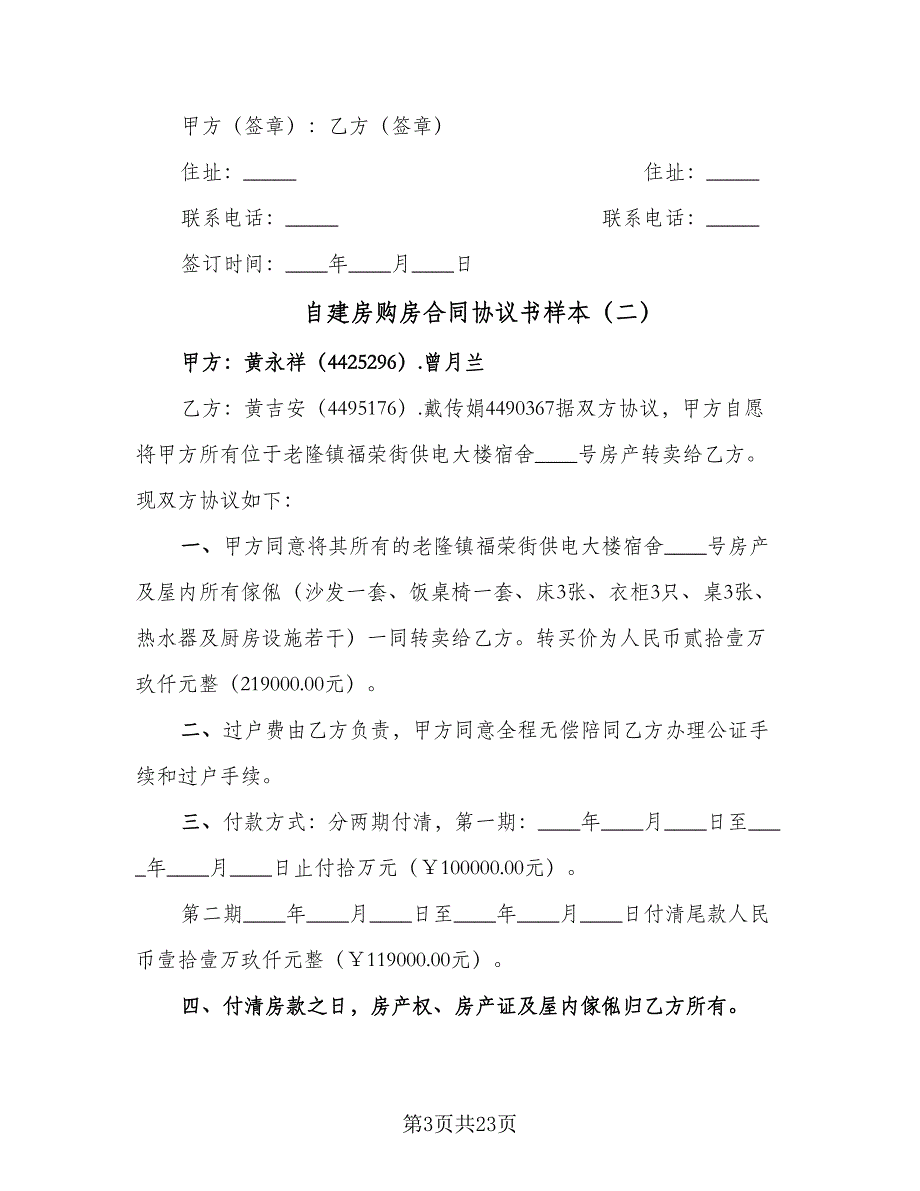 甲方（签章）：乙方（签章）
住址：_____ 住址：_____
联系电话：_____ 联系电话：_____
签订时间：____年____月____日
自建房购房合同协议书样本（二）
甲方：黄永祥（4425296）.曾月兰
乙方：黄吉安（4495176）.戴传娟4490367据双方协议，甲方自愿
将甲方所有位于老隆镇福荣街供电大楼宿舍____号房产转卖给乙方。
现双方协议如下：
一、甲方同意将其所有的老隆镇福荣街供电大楼宿舍____号房产
及屋内所有傢俬（沙发一套、饭桌椅一套、床3张、衣柜3只、桌3张、
热水器及厨房设施若干）一同转卖给乙方。转买价为人民币贰拾壹万
玖仟元整（219000.00元）。
二、过户费由乙方负责，甲方同意全程无偿陪同乙方办理公证手
续和过户手续。
三、付款方式：分两期付清，第一期：____年____月____日至___
_年____月____日止付拾万元（￥100000.00元）。
第二期____年____月____日至____年____月____日付清尾款人民
币壹拾壹万玖仟元整（￥119000.00元）。
四、付清房款之日，房产权、房产证及屋内傢俬归乙方所有。
第3页共23页